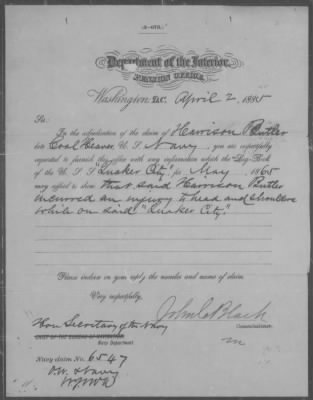 (3-075.)
Department of the Interior,
PENSION OFFICE,
Washington, D.C. April 2, 1885
Sir:
In the adjudication of the claim of Harrison Butler
late Coal Heaver U. S. Navy, you are respectfully
requested to furnish this office with any information which the Log-Book
of the U. S. S. "Quaker City" for May 1865
may afford to show that said Harrison Butler
incurred an injury to head and shoulders
while on said "Quaker City."
Please indorse on your reply the number and name of claim.
Very respectfully,
John C Black
Commissioner.
Hon Secretary of the Navy
CHIEF OF THE BUREAU OF NAVIGATION
Navy Department
Navy claim No. 6547
O.W. & Navy